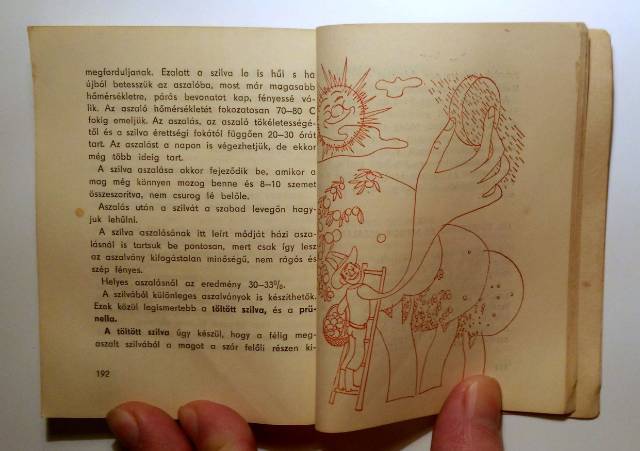 megforduljanak. Ezalatt a szilva le is hűl s ha
újból betesszük az aszalóba, most már magasabb
hőmérsékletre, párás bevonatot kap, fényessé vá-
lik. Az aszaló hőmérsékletét fokozatosan 70–80 C
fokig emeljük. Az aszalás, az aszaló tökéletességé-
től és a szilva érettségi fokától függően 20–30 órát
tart. Az aszalást a napon is végezhetjük, de ekkor
még több ideig tart.
A szilva aszalása akkor fejeződik be, amikor a
mag még könnyen mozog benne és 8–10 szemet
összeszorítva, nem csurog lé belőle.
Aszalás után a szilvát a szabad levegőn hagy-
juk lehűlni.
A szilva aszalásának itt leírt módját házi asza-
lásnál is tartsuk be pontosan, mert csak így lesz
az aszalvány kifogástalan minőségű, nem rágós és
szép fényes.
Helyes aszalásnál az eredmény 30–33%.
A szilvából különleges aszalványok is készíthetők.
Ezek közül legismertebb a töltött szilva, és a prü-
nella.
A töltött szilva úgy készül, hogy a félig meg-
aszalt szilvából a magot a szár felőli részen ki-
192